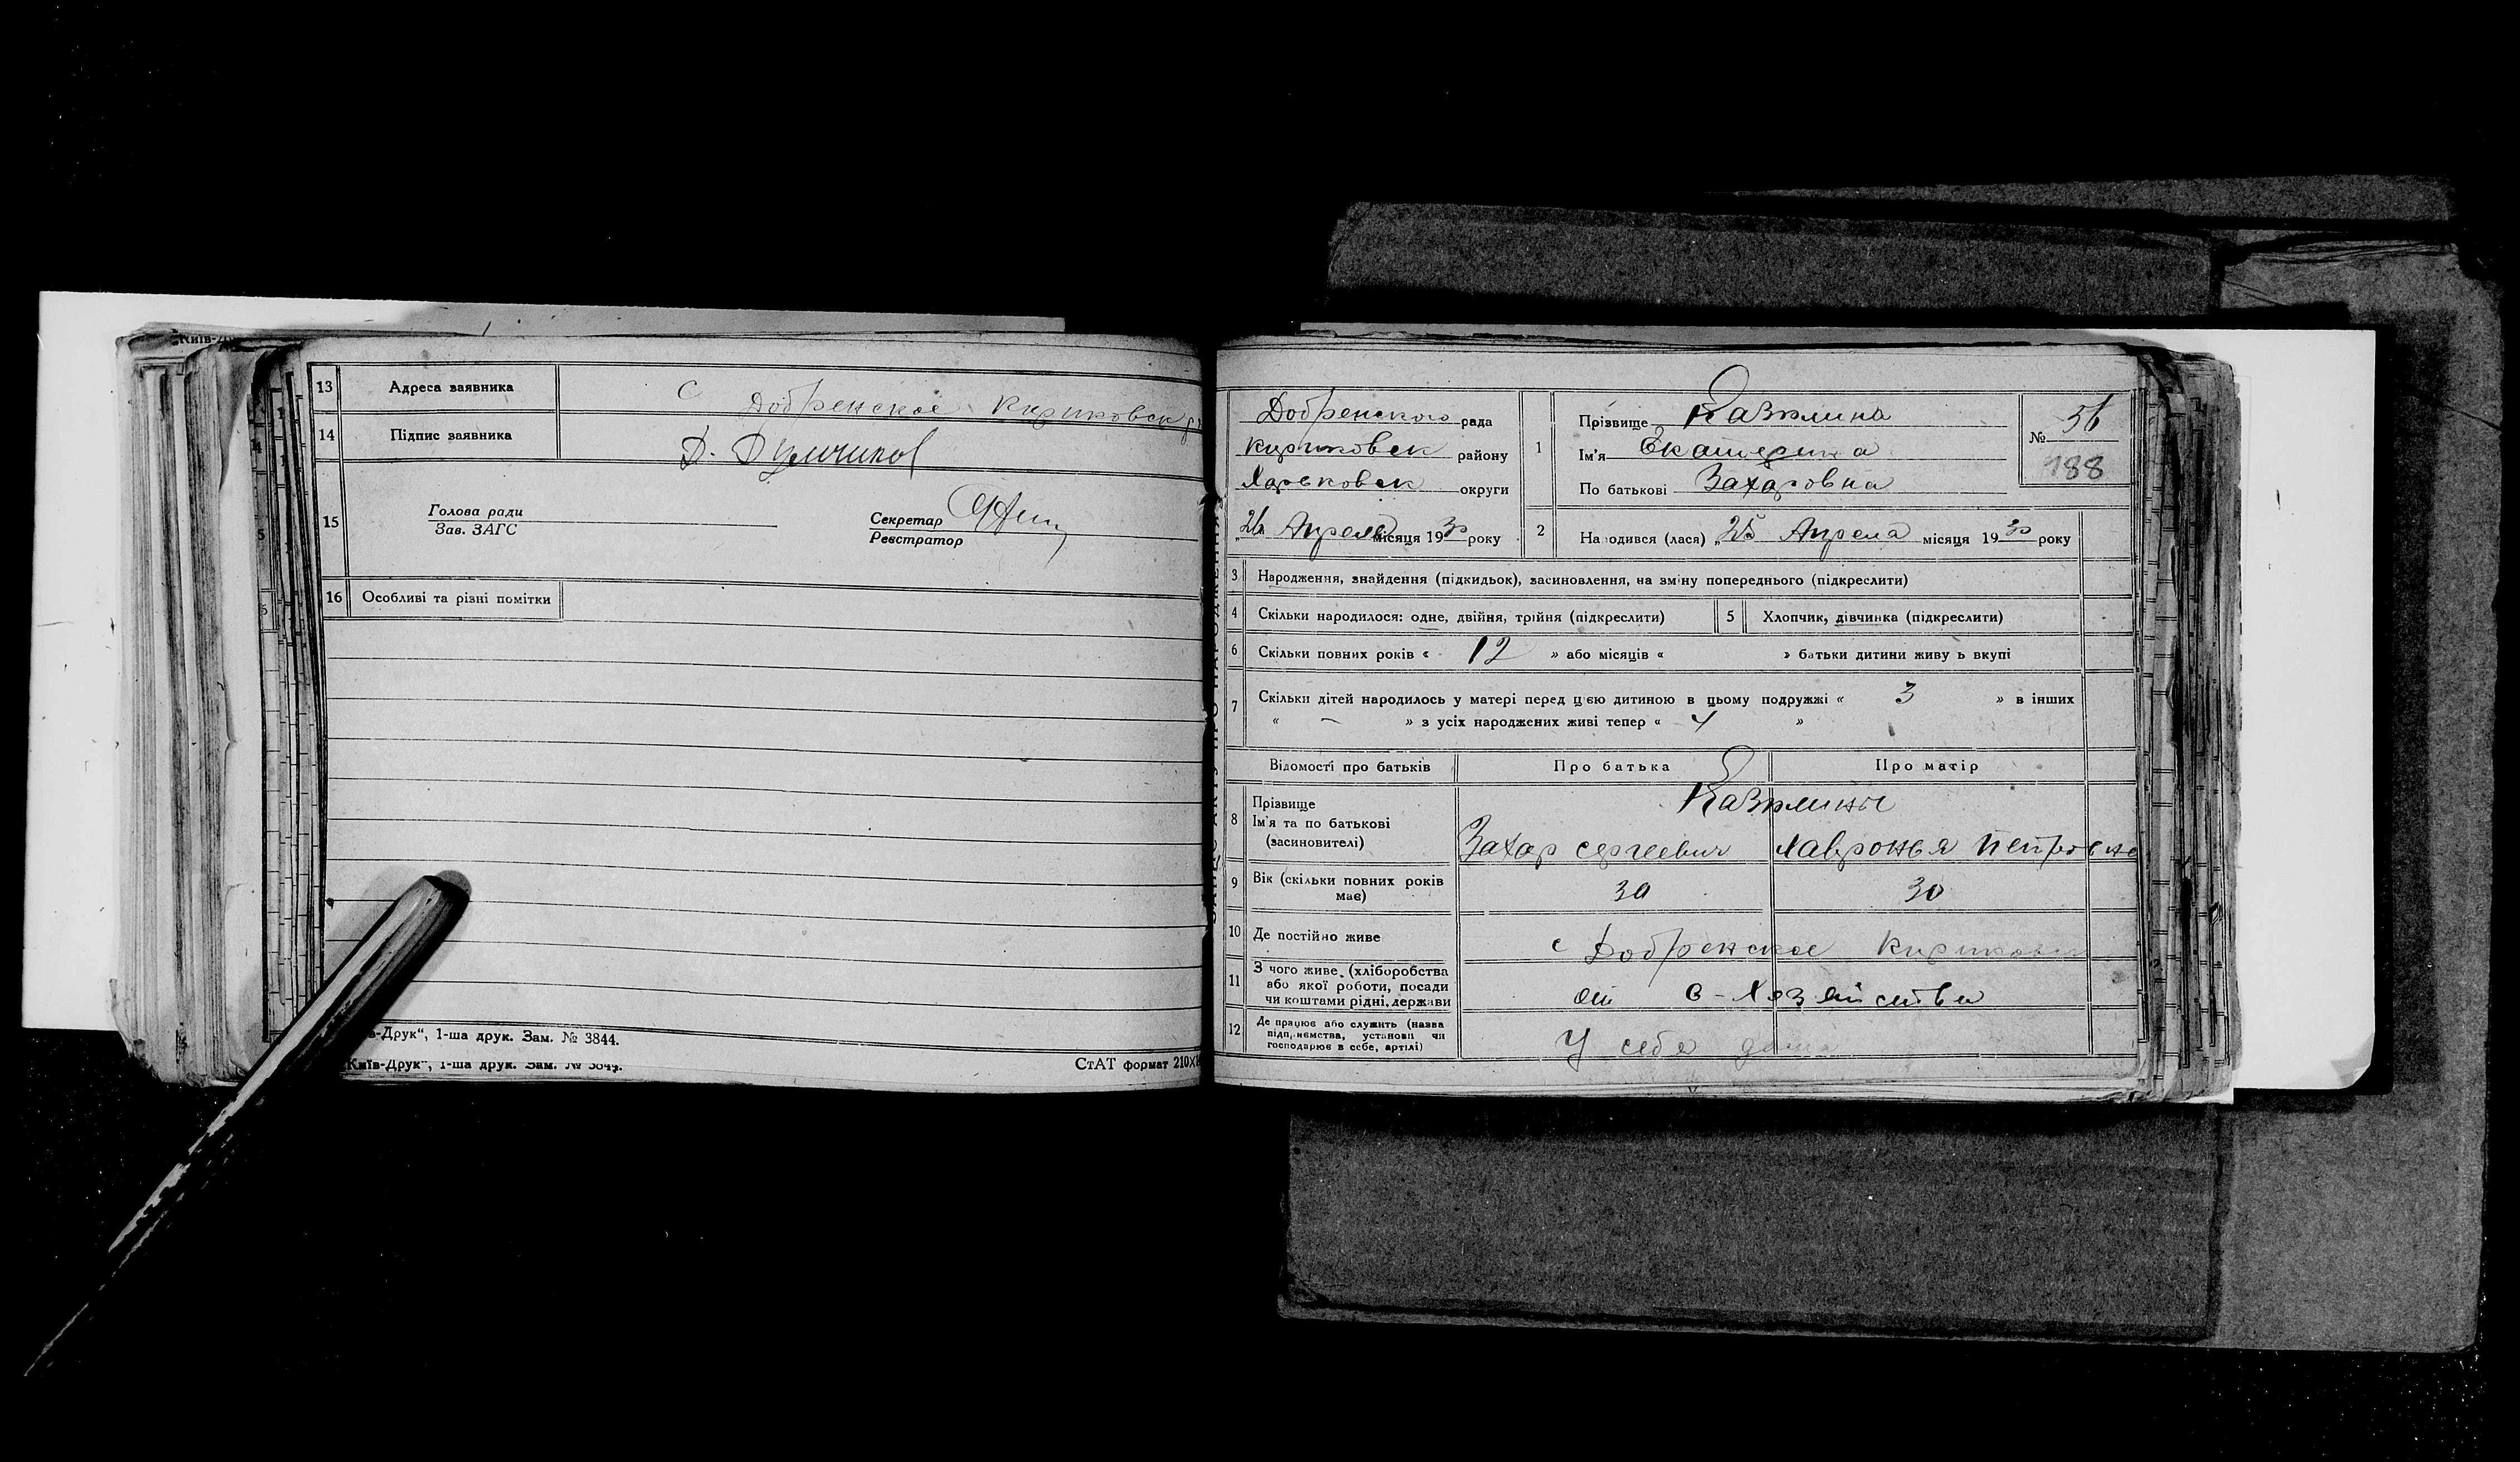 Київ-Др
13 Адреса заявника с Добренское Кириковск р
14 Підпис заявника
15 Голова ради
Зав. ЗАГС
Секретар
Реєстратор
16 Особливі та різні помітки
в-Друк“, 1-ша друк. Зам. № 3844.
Київ-Друк“, 1-ша друк. Зам. № 3844.
СтАТ формат 210×
Добренского рада
Кириковск району
Харьковск округи
„26 Апреля місяця 1930 року
1 Прізвище
Ім'я Екатерина
По батькові Захаровна
№ 56
188
2 На одився (лася) „25 Апреля місяця 1930 року
3 Народження, знайдення (підкидьок), засиновлення, на зміну попереднього (підкреслити)
4 Скільки народилося: одне, двійня, трійня (підкреслити)
5 Хлопчик, дівчинка (підкреслити)
6 Скільки повних років « 12 » або місяців « » батьки дитини живу ь вкупі
7 Скільки дітей народилось у матері перед цією дитиною в цьому подружжі « 3 » в інших
« – » з усіх народжених живі тепер « 4 »
Відомості про батьків Про батька Про матір
8 Прізвище
Ім'я та по батькові
(засиновителі)
Захар Сергеевич Хавронья Петровна
9 Вік (скільки повних років має) 30 30
10 Де постійно живе с Добренское Кириковск
11 З чого живе, (хліборобства
або якої роботи, посади
чи коштами рідні, держави
от с-хозяйства
12 Де працює або служить (назва
підприємства, установи чи
господарює в себе, артілі)
У себя дома